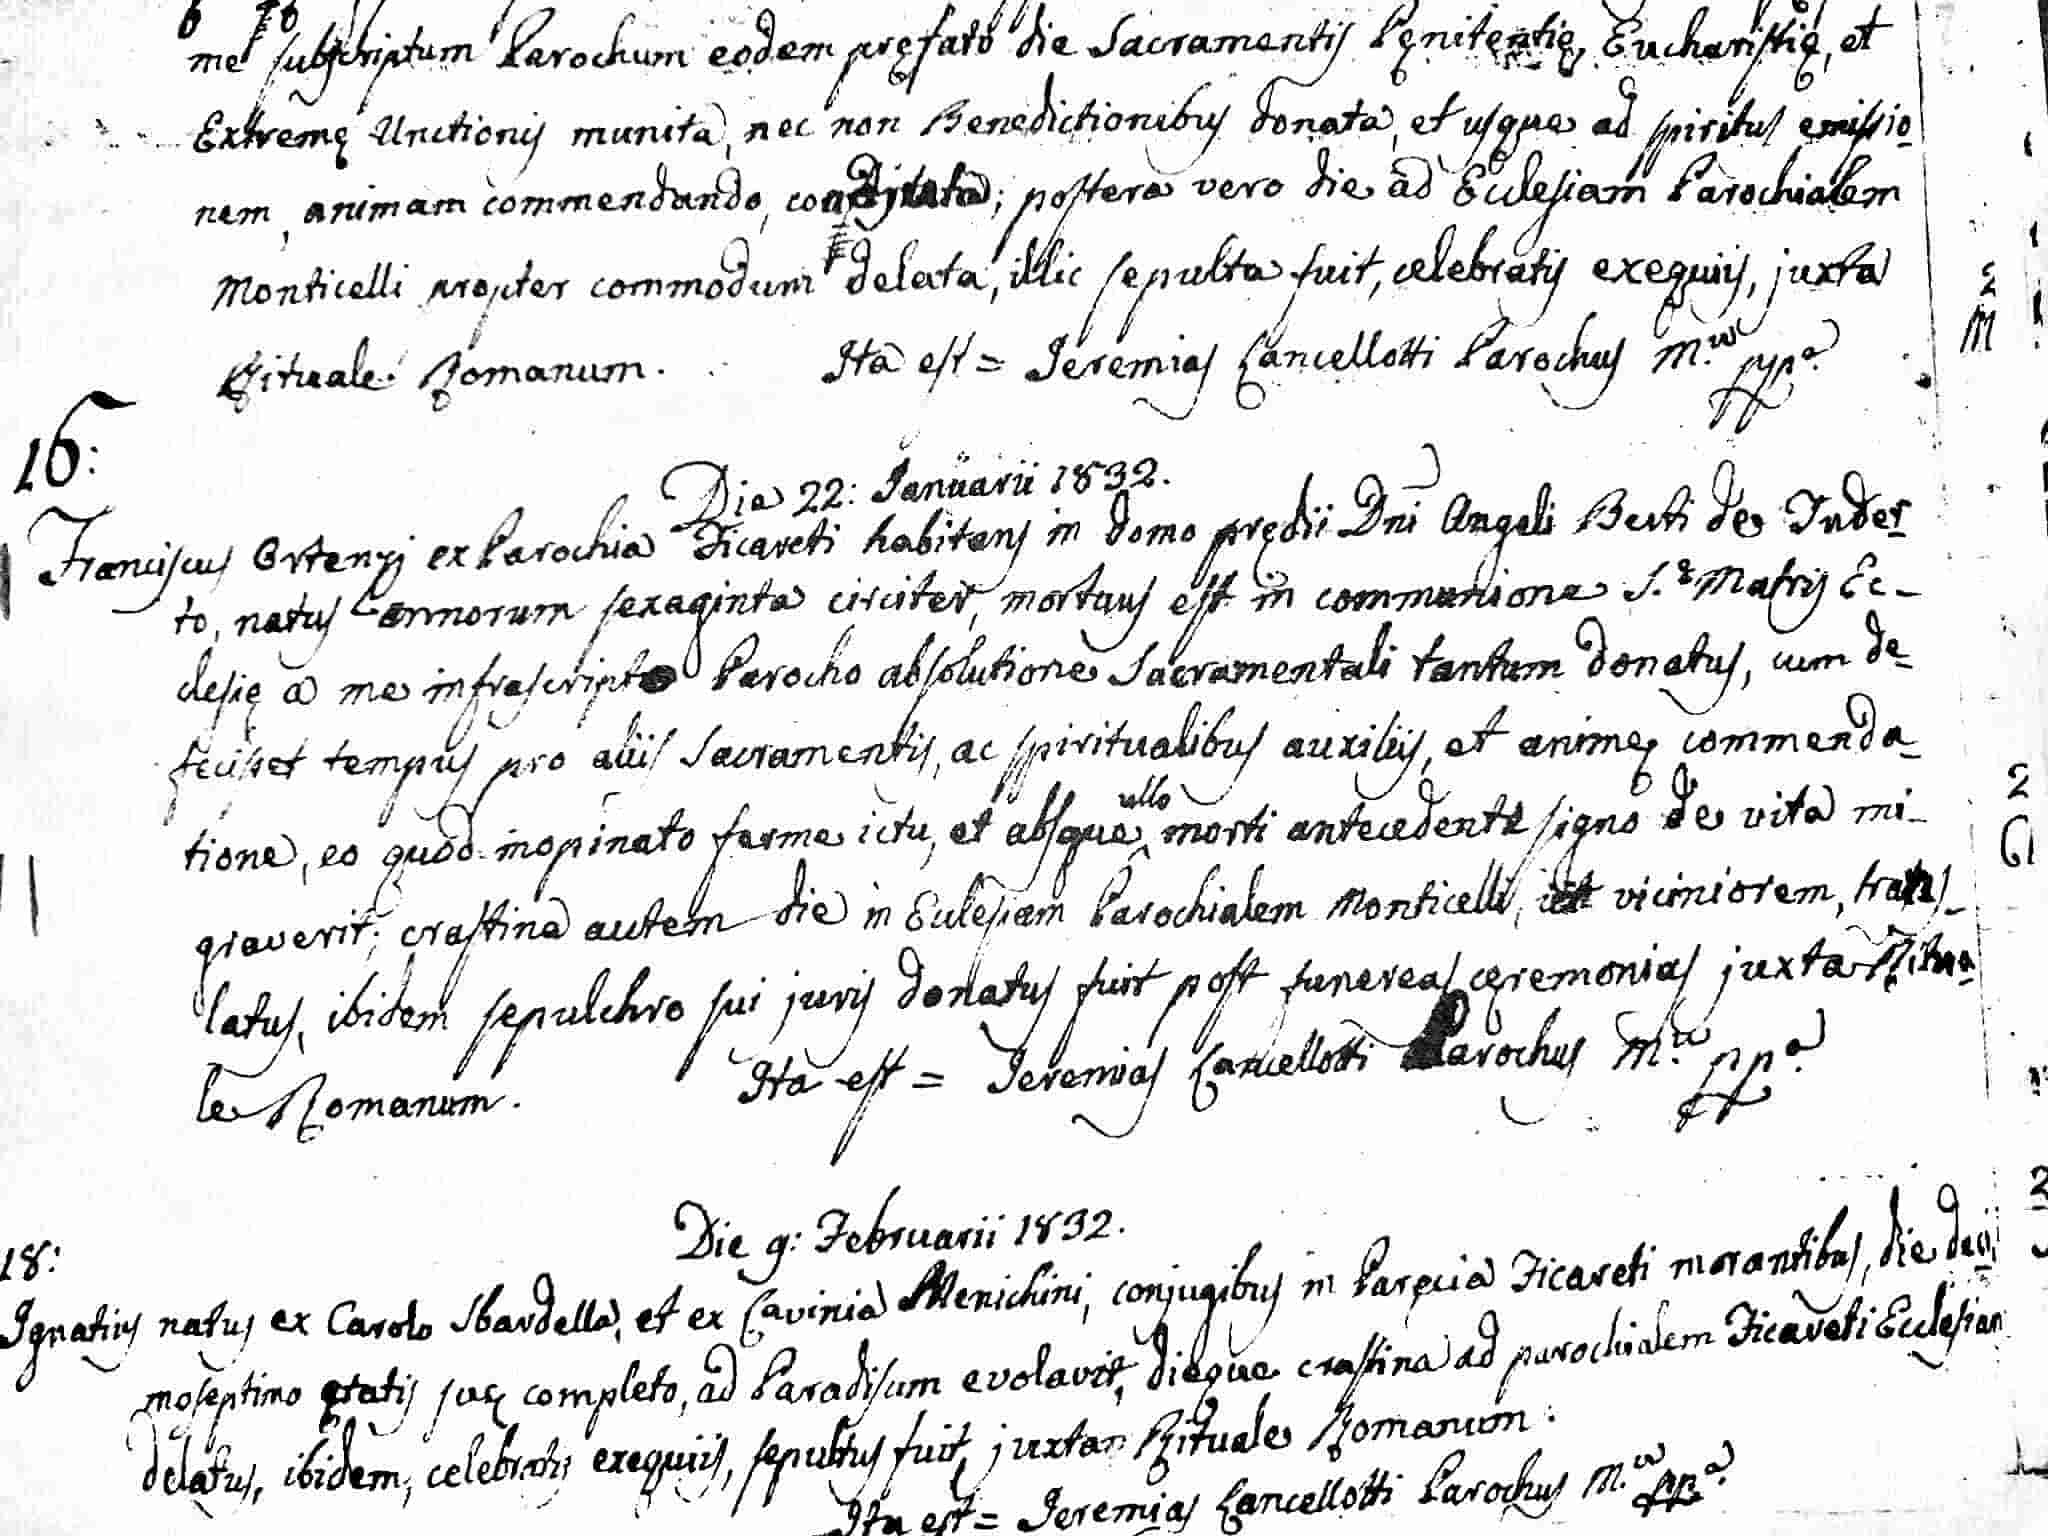 me subscriptum Parochum eodem pręfato die Sacramentis Pęnitentię, Eucharistię, et
Extremę Unctionis munita, nec non Benedictionibus donata, et usque ad spiritus emissio-
nem, animam commendando, ; postera vero die ad Eclesiam Parochialem
Monticelli propter commodum delata, illic sepulta fuit, celebratis exequiis, juxta
Rituale Romanum. Ita est = Jeremias Cancellotti Parochus M.us pp.a
16:
Die 22: Januarii 1832.
Franciscus Ortenzj ex Parochia Ficareti habitans in domo prędii Dni Angeli Berti de Tuder-
to, natus annorum sexaginta circiter, mortuus est in communione S.ę Matris Ec-
clesię a me infrascripto Parocho absolutione Sacramentali tantum donatus, cum de-
fecisset tempus pro aliis Sacramentis, ac spiritualibus auxiliis, et animę commenda-
tione, eo quod inopinato ferme ictu, et absque ullo morti antecedente signo de vita mi-
graverit; crastina autem die in Eclesiam Parochialem Monticelli, viciniorem, trans-
latus, ibidem sepulchro sui juris donatus fuit post funereas cęremonias juxta Ritua-
le Romanum. Ita est = Jeremias Cancellotti Parochus M.us pp.a
Die 9: Februarii 1832.
18:
Ignatius natus ex Carolo Sbardella, et ex Lavinia Menichini, conjugibus in Paręcia Ficareti morantibus, die deci-
moseptimo ętatis suę completo, ad Paradisum evolavit, dieque crastina ad parochialem Ficareti Ecclesiam
delatus, ibidem, celebratis exequiis, sepultus fuit, juxta Rituale Romanum.
Ita est = Jeremias Cancellotti Parochus M.us pp.a